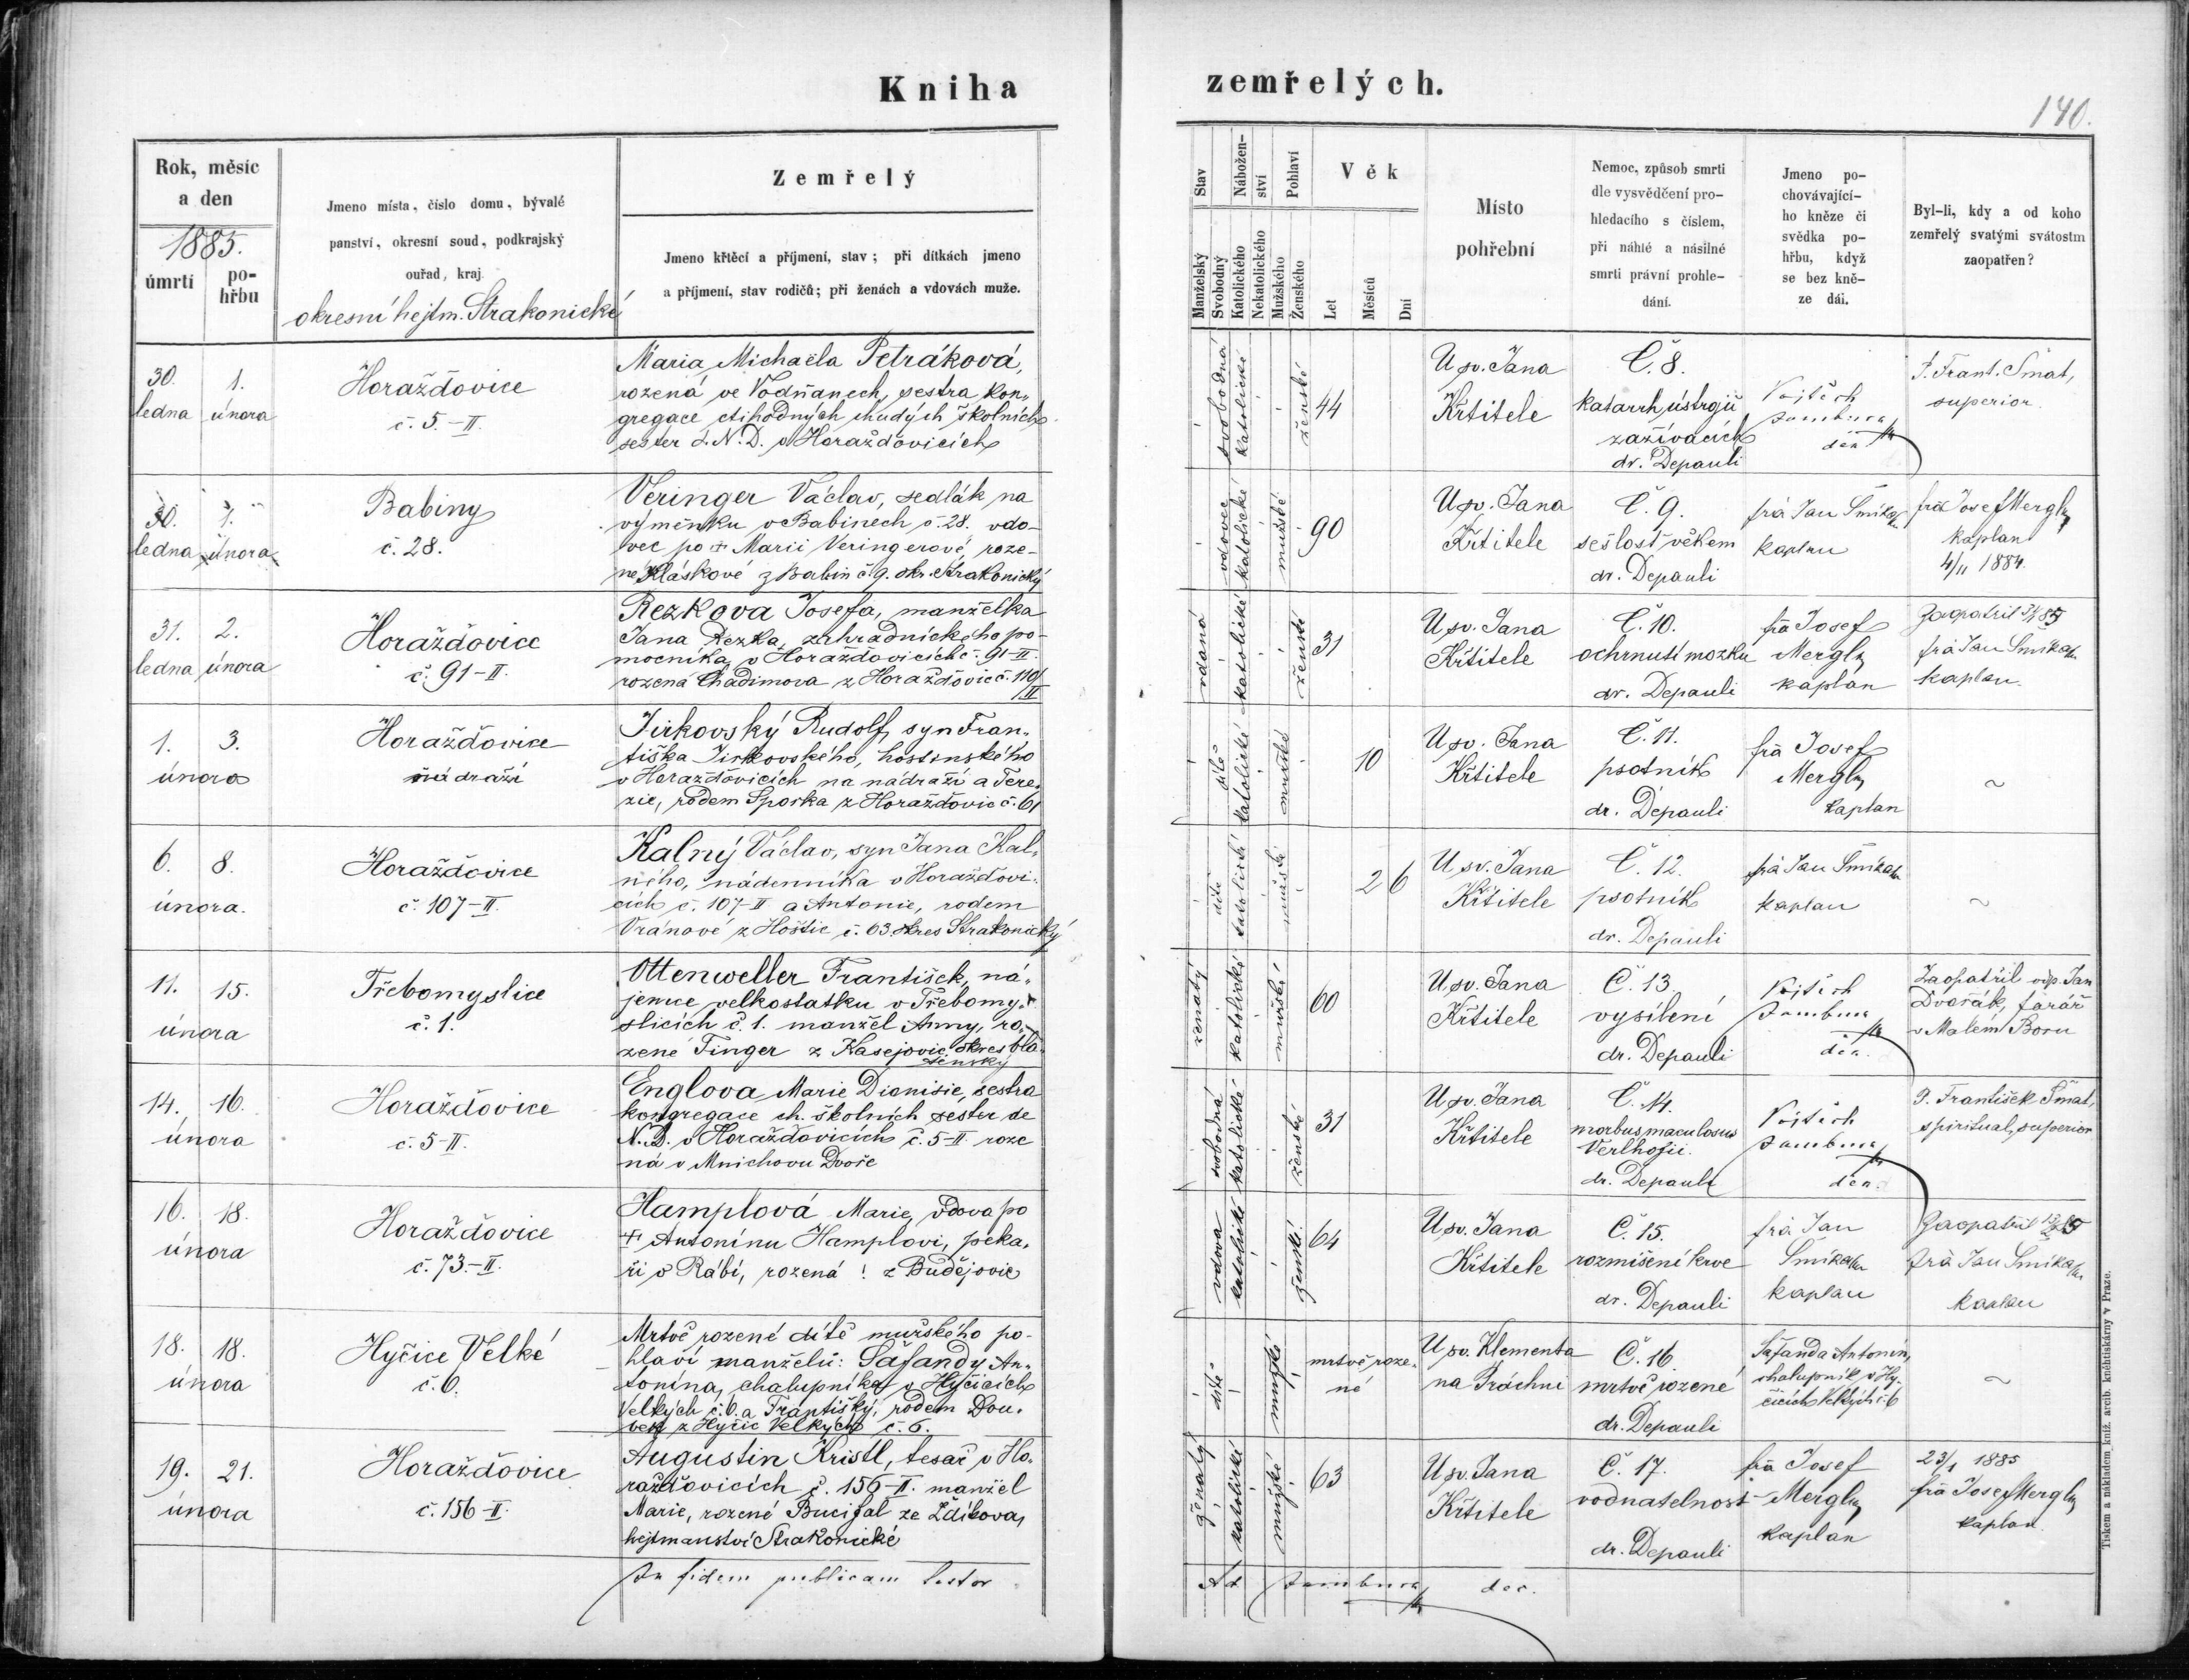 Kniha
zemřelých.
140.
Rok, měsíc
a den
1885.
úmrtí
po-
hřbu
Jmeno místa, číslo domu, bývalé
panství, okresní soud, podkrajský
ouřad, kraj
okresní hejtm. Strakonické
Zemřelý
Jmeno křtěcí a příjmení, stav; při dítkách jmeno
a příjmení, stav rodičů; při ženách a vdovách muže.
Stav
Manželský
Svobodný
Nábožen-
ství
Katolického
Nekatolického
Pohlaví
Mužského
Ženského
Věk
Let
Měsíců
Dní
Místo
pohřební
Nemoc, způsob smrti
dle vysvědčení pro-
hledacího s číslem,
při náhlé a násilné
smrti právní prohle-
dání.
Jmeno po-
chovávající-
ho kněze či
svědka po-
hřbu, když
se bez kně-
ze dái.
Byl-li, kdy a od koho
zemřelý svatými svátostm
zaopatřen?
30. 1.
ledna února
Horažďovice
č. 5.-II.
Maria Michaela Petráková,
rozená ve Vodňanech, sestra kon-
gregace ctihodných chudých školních
sester d. N. D. v Horažďovicích
svobodná
katolické
ženské
44
U sv. Jana
Křtitele
Č. 8.
katarrh ústrojů
zažívacích
dr. Depauli
Vojtěch
Jambura
děk.
P. Frant. Šmat,
superior.
30. 1.
ledna února
Babiny
č. 28.
Veringer Václav, sedlák na
výměnku v Babinech č. 28. vdo-
vec po + Marii Veringerové, roze-
né Kláskové z Babin č. 9. okr. Strakonický
vdovec
katolické
mužské
90
U sv. Jana
Křtitele
Č. 9.
sešlost věkem
dr. Depauli
frà Jan Smíka
kaplan
frà Josef Mergl
kaplan
4/11 1884.
31. 2.
ledna února
Horažďovice
č. 91-II.
Rezkova Josefa, manželka
Jana Rezka, zahradnického po-
mocníka v Horažďovicích č. 91-II.
rozená Chadimova z Horažďovic č. 110/
II
vdaná
katolické
ženské
31
U sv. Jana
Křtitele
Č. 10.
ochrnutí mozku
dr. Depauli
frà Josef
Mergl
kaplan
Zaopatřil 31/1 85
frà Jan Smíka
kaplan.
1. 3.
února
Horažďovice
nádraží
Jirkovský Rudolf, syn Fran-
tiška Jirkovského, hostinského
v Horažďovicích na nádraží a Tere-
zie, rodem Sporka z Horažďovic č. 61
dítě
katolické
mužské
10
U sv. Jana
Křtitele
Č. 11.
psotník
dr. Depauli
frà Josef
Mergl
kaplan
~
6. 8.
února.
Horažďovice
č. 107-II.
Kalný Václav, syn Jana Kal-
ného, nádenníka v Horažďovi-
cích č. 107-II a Antonie, rodem
Vránové z Hoštic č. 63. okres Strakonický
dítě
katolické
mužské
2 6
U sv. Jana
Křtitele
Č. 12.
psotník
dr. Depauli
frà Jan Smíka
kaplan
~
11. 15.
února
Třebomyslice
č. 1.
Ottenweller František, ná-
jemce velkostatku v Třebomy-
slicích č. 1. manžel Anny, ro-
zené Finger z Kasejovic okres bla-
tenský
ženatý
katolické
mužské
60
U sv. Jana
Křtitele
Č. 13
vysílení
dr. Depauli
Vojtěch
Jambura
děk.
Zaopatřil vdp. Jan
Dvořák, farář
v Malém Boru
14. 16.
února
Horažďovice
č. 5-II.
Englova Marie Dionisie, sestra
kongregace ch. školních sester de
N. D. v Horažďovicích č. 5-II roze
ná v Mnichovu Dvoře
svobodná
katolické
ženské
31
U sv. Jana
Křtitele
Č. 14.
morbus maculosus
Verlhofii.
dr. Depauli
Vojtěch
Jambura
děk.
P. František Šmat,
spiritual, superior
16. 18.
února
Horažďovice
č. 73.-II.
Hamplová Marie, vdova po
+ Antonínu Hamplovi, peka-
ři v Rábí, rozená ! z Budějovic
vdova
katolické
ženské
64
U sv. Jana
Křtitele
Č. 15.
rozmíšení krve
dr. Depauli
frà Jan
Smíka
kaplan
Zaopatřil
frà Jan Smíka
kaplan
18. 18.
února
Hyčice Velké
č. 6.
Mrtvě rozené dítě mužského po-
hlaví manželů: Šafandy An-
tonína, chalupníka v Hyčicích
Velkých č. 6. a Františky, rodem Dou-
bek z Hyčic Velkých č. 6.
dítě
mužské
mrtvě roze-
né
U sv. Klementa
na Práchni
Č. 16.
mrtvě rozené
dr. Depauli
Šafanda Antonín,
chalupník v Hy-
čicích Velkých č. 6
~
19. 21.
února
Horažďovice
č. 156-II.
Augustin Kristl, tesař v Ho-
ražďovicích č. 156-II. manžel
Marie, rozené Bucifal ze Zdíkova,
hejtmanství Strakonické
ženatý
katolické
mužské
63
U sv. Jana
Křtitele
Č. 17.
vodnatelnost
dr. Depauli
frà Josef
Mergl
kaplan
23/1 1885
frà Josef Mergl
kaplan
In fidem publicam testor
Ad. Jambura dec.
Tiskem a nákladem kníž. arcib. knihtiskárny v Praze.